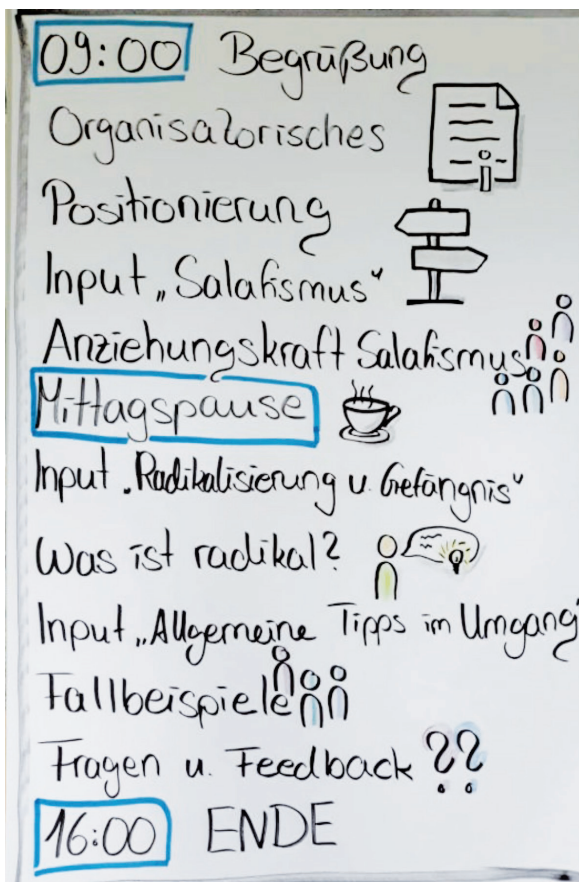 09:00 Begrüßung
Organisatorisches
Positionierung
Input „Salafismus“
Anziehungskraft Salafismus
Mittagspause
Input „Radikalisierung u. Gefängnis“
Was ist radikal?
Input „Allgemeine Tipps im Umgang“
Fallbeispiele
Fragen u. Feedback ??
16:00 ENDE